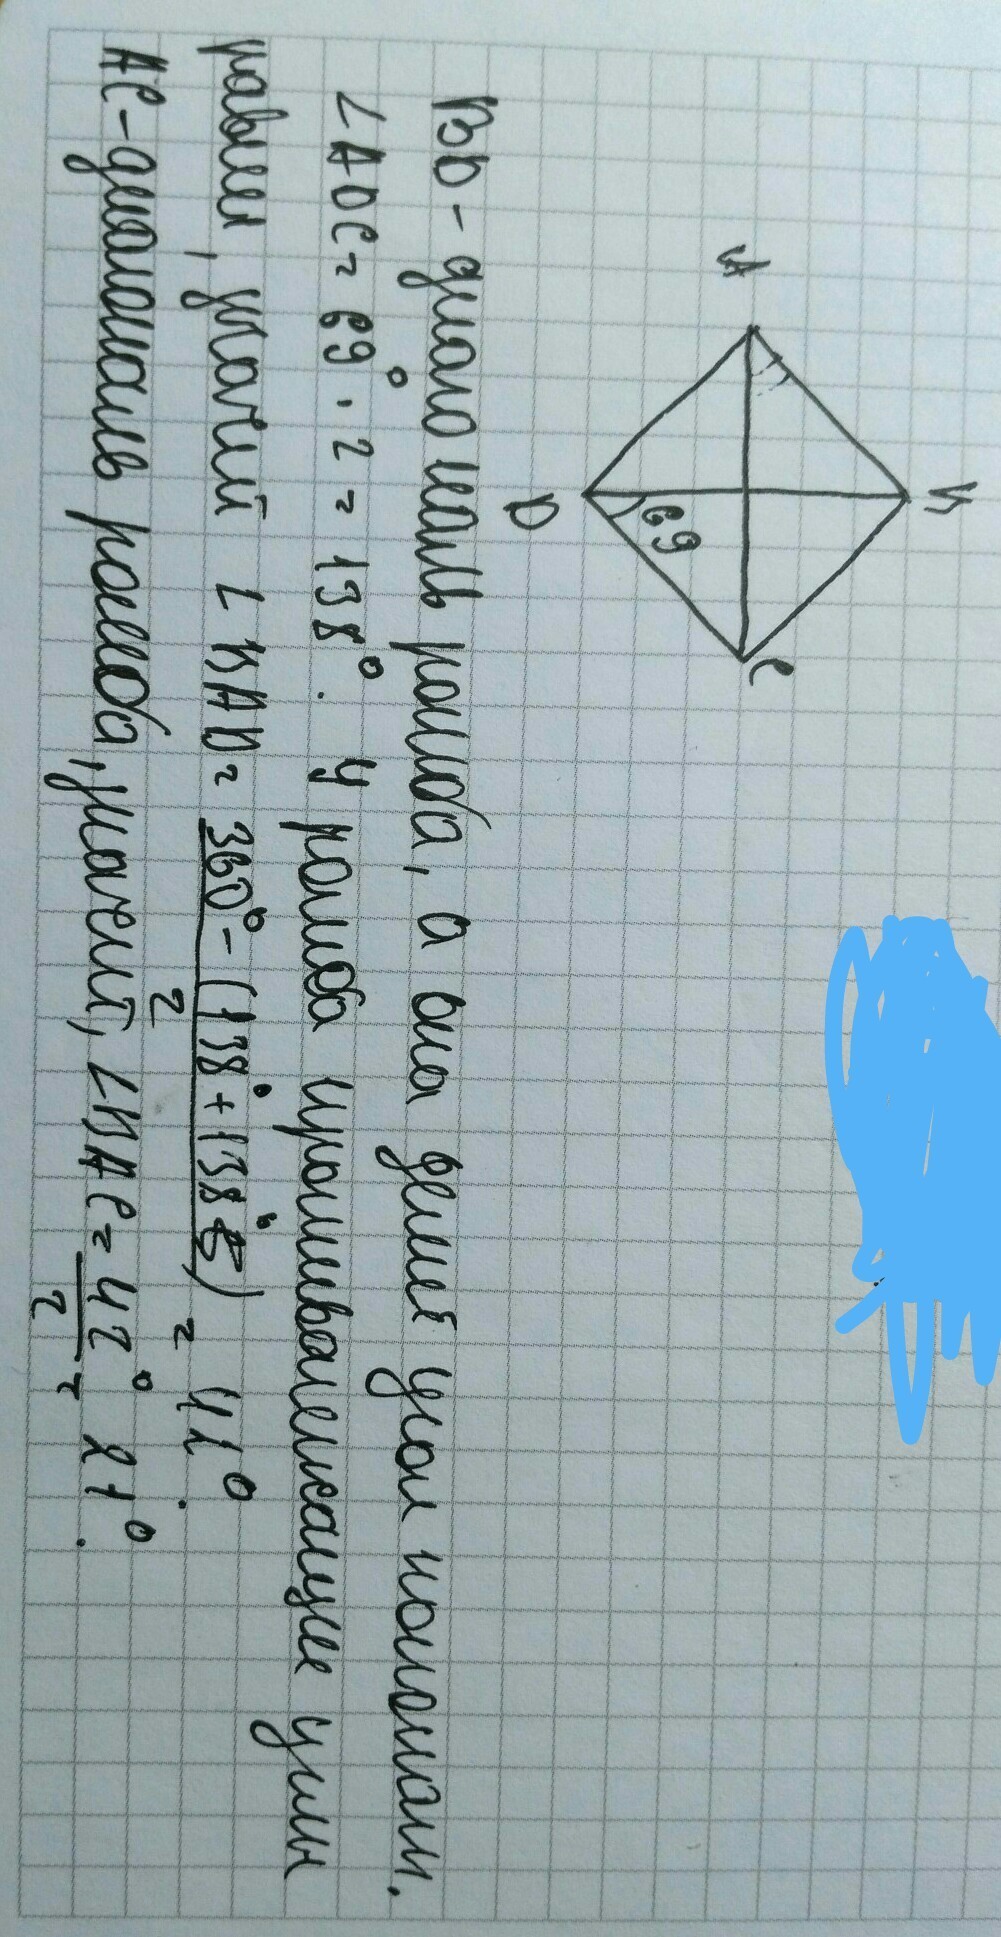 A
B
C
D
69
BD - диагональ ромба, а она делит угол пополам.
∠ADC = 69° · 2 = 138°. У ромба противолежащие углы
равны, значит ∠BAD = 360° - (138° + 138°) / 2 = 42°.
AC - диагональ ромба, значит, ∠BAC = 42° / 2 = 21°.